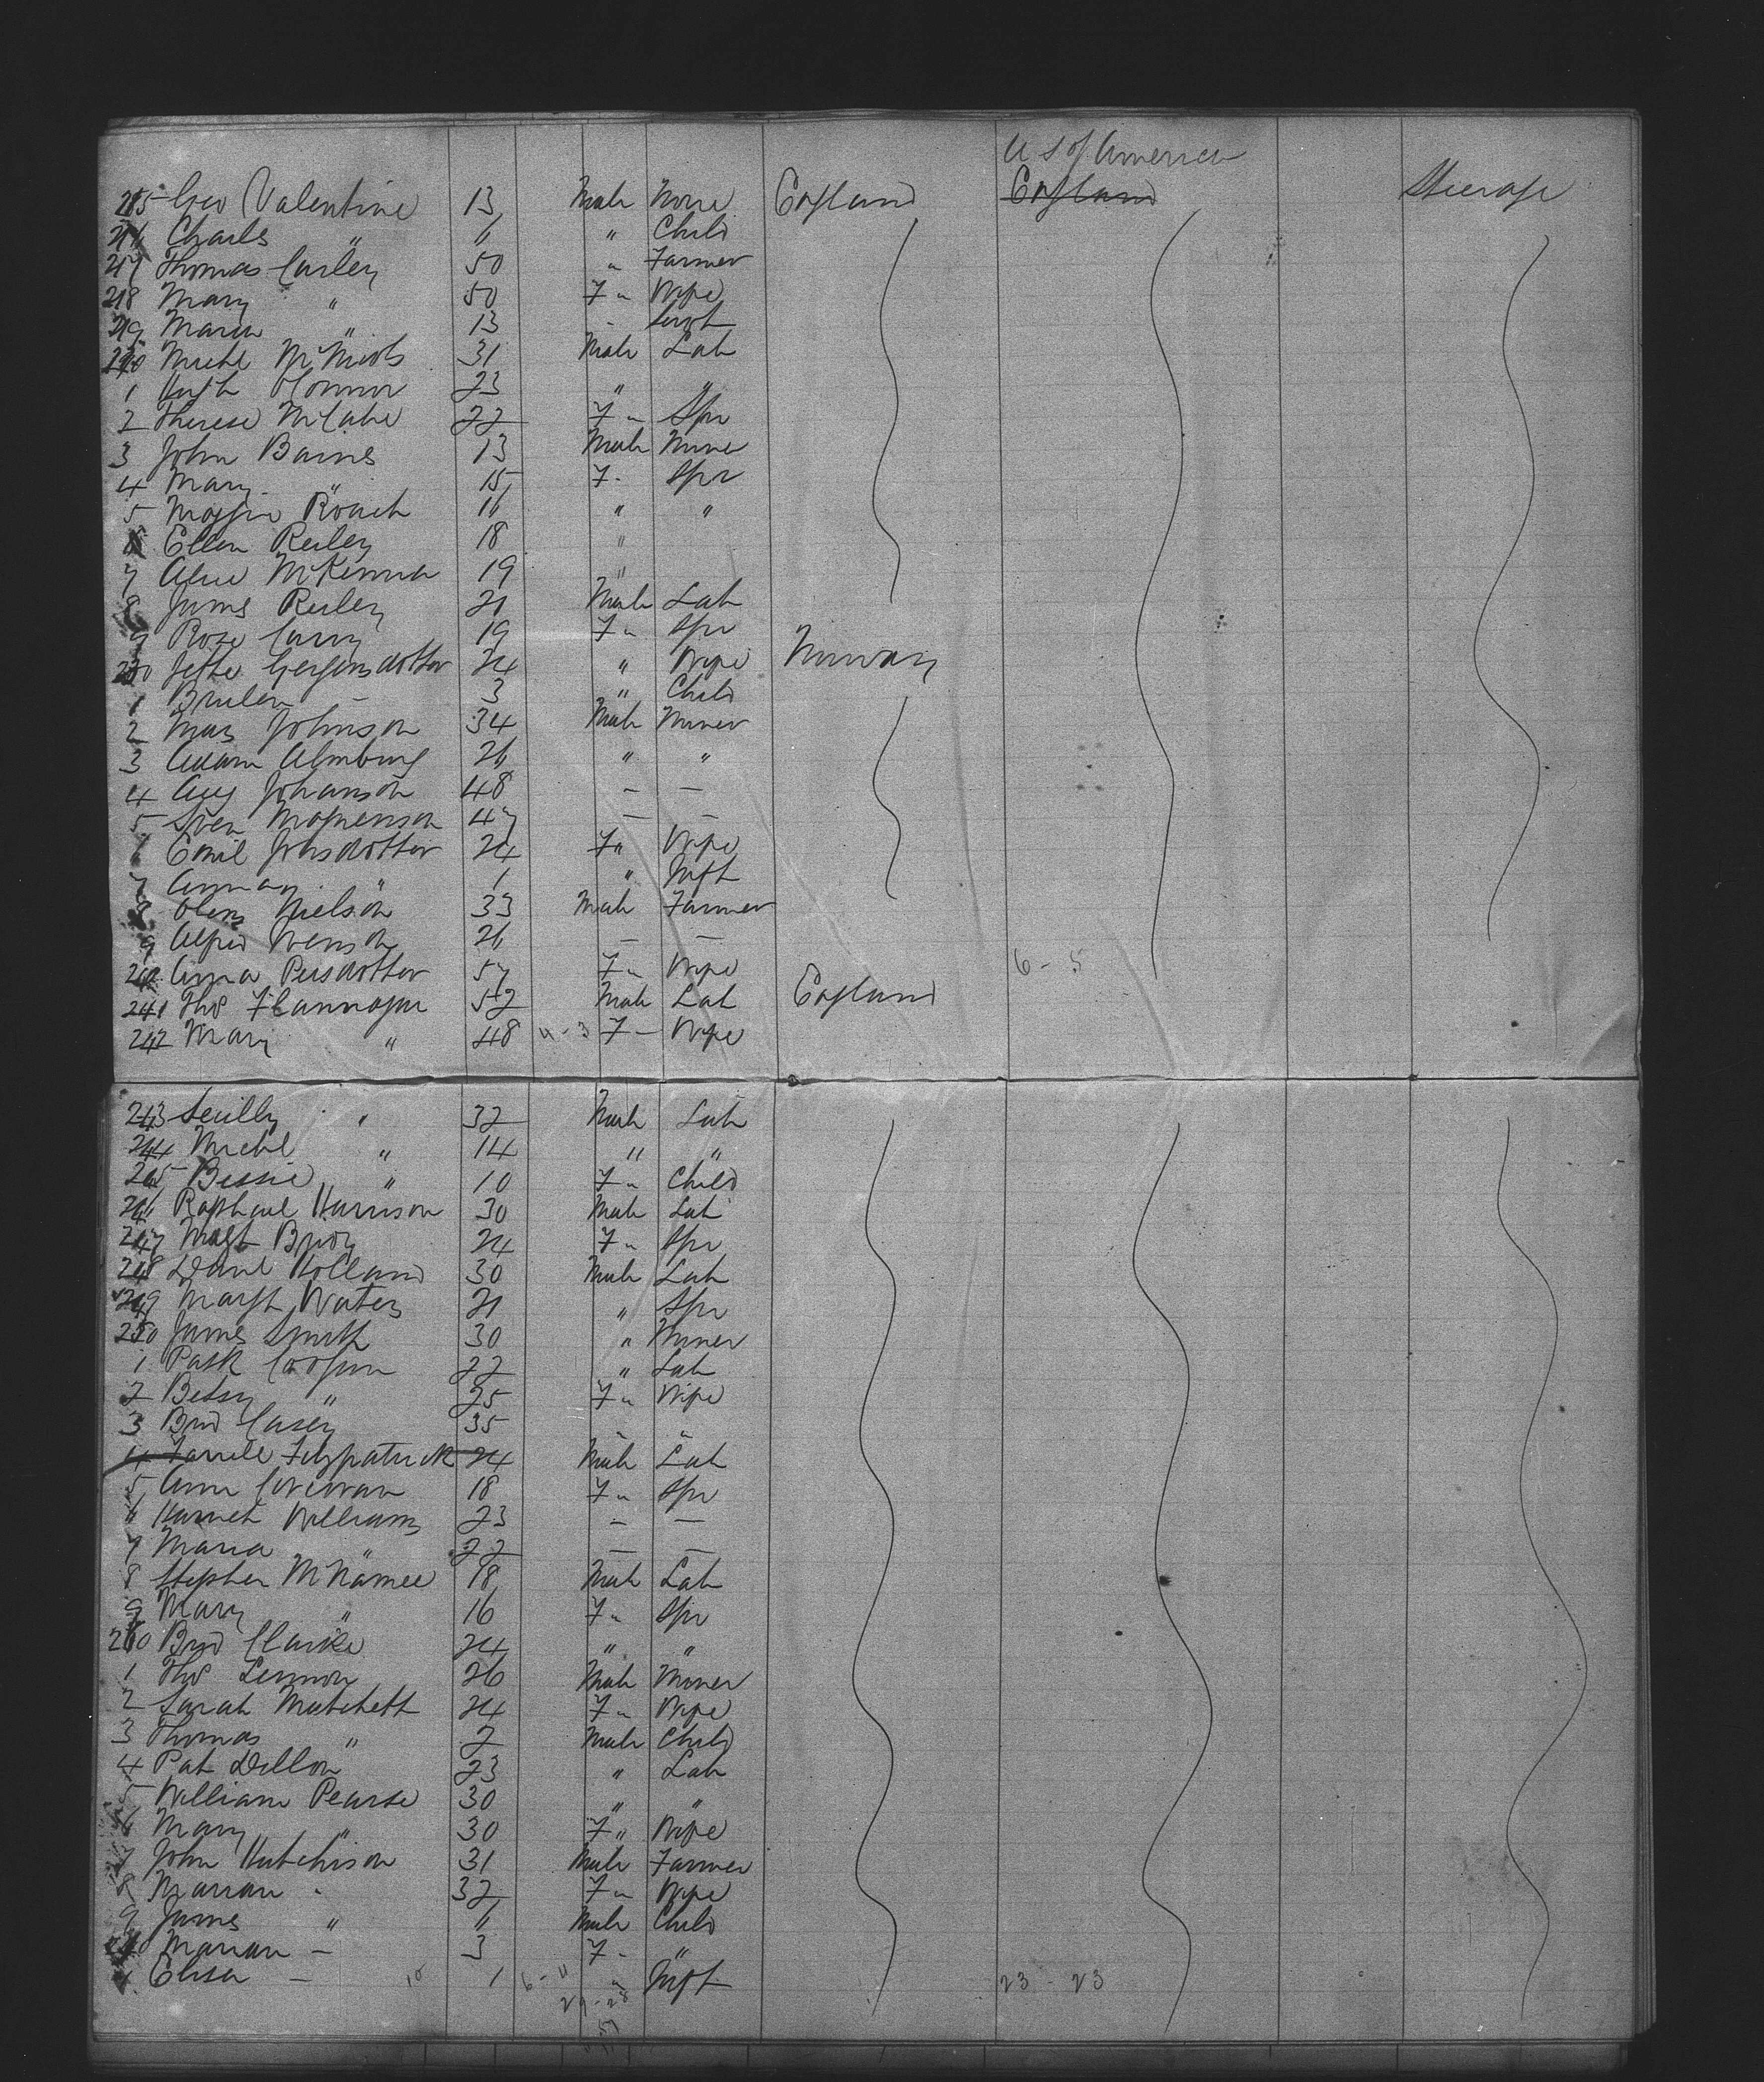 U S of America
215 Geo Valentine 13 Male None England England Steerage
216 Charles " 6 " Child
217 Thomas Curley 50 " Farmer
218 Mary " 50 F " Wife
219 Maria " 13 Servt
220 Michl McNicols 31 Male Lab
1 Hugh OConnor 23 " "
2 Therese McCabe 22 F " Spr
3 John Barnes 13 Male Miner
4 Mary " 15 F " Spr
5 Maggie Roach 16 " "
6 Ellen Reiley 18 "
7 Alice McKenna 19 "
8 James Reiley 21 Male Lab
9 Rose Carry 19 F " Spr
230 Jette Gergensdotter 24 " Wife Norway
1 3 " Child
2 Mas Johnson 34 Male Miner
3 Adam Almburg 26 " "
4 Aug Johanson 48 — —
5 Sven Magnenson 47 — —
6 Emil Jonsdotter 24 F " Wife
7 Anna " 1 " Inft
8 Olens Nielson 33 Male Farmer
9 Alfred Svenson 26 — —
240 Anna Persdotter 57 F " Wife 6 - 5
241 Thos Flannagan 52 Male Lab England
242 Mary " 48 4 - 3 F — Wife
243 " 32 Male Lab
244 Michl " 14 " "
245 Bessie " 10 F " Child
246 Raphael Harrison 30 Male Lab
247 Magt 24 F " Spr
248 Danl Holland 30 Male Lab
249 Margt Waters 21 " Spr
250 James Smith 30 " Miner
1 Patk Coogan 22 " Lab
2 Betsy " 25 F " Wife
3 Brid Casey 35 " "
4 Farrell Fitzpatrick 24 Male Lab
5 Ann Corcoran 18 F " Spr
6 Harriet Williams 23 — —
7 Maria " 22 — —
8 Stephen McNamee 18 Male Lab
9 Mary " 16 F " Spr
260 Brid Clarke 24 " "
1 Thos Lennon 26 Male Miner
2 Sarah Matchett 24 F " Wife
3 Thomas " 2 Male Child
4 Pat Dillon 23 " Lab
5 William Pearse 30 " "
6 Mary " 30 F " Wife
7 John Hutchison 31 Male Farmer
8 Marian " 32 F " Wife
9 James " 6 Male Child
270 Marian — 3 F - "
1 Elisa — 10 1 6 - 11 " Inft 23 - 23
29 - 28